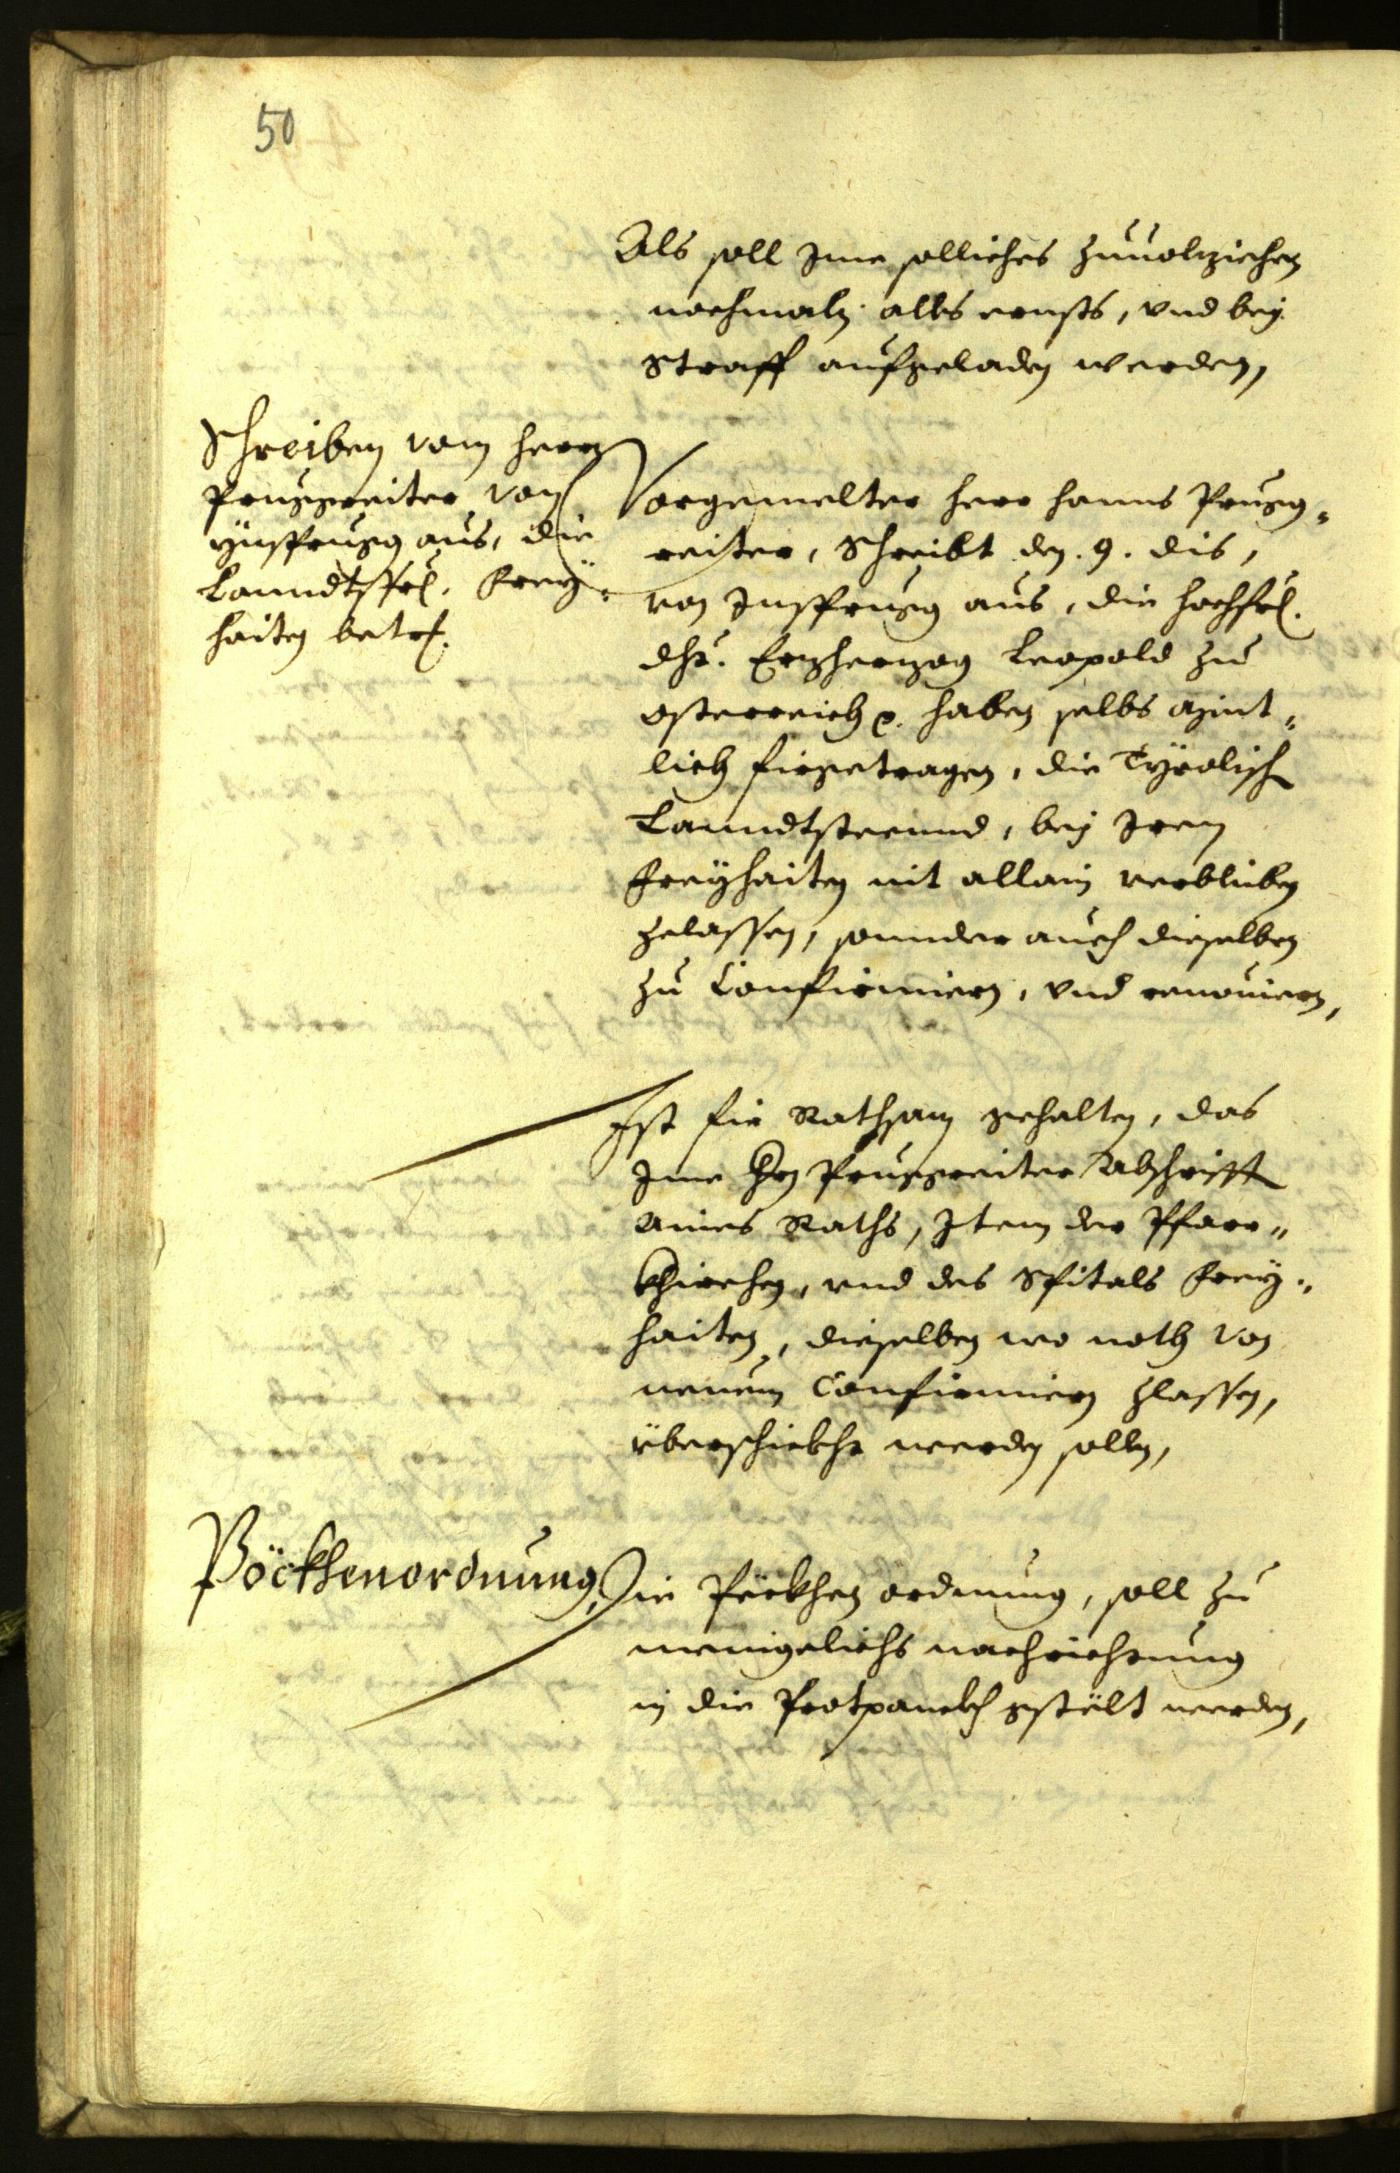 50
Als soll Ime solliches zuuolziechen
nochmaln alles ernsts, vnd bey
Straff aufgeladen werden,
Schreiben vom herrn
Pruggreiter von
Ynsprugg aus, die
Lanndtsfrl. Frey-
haiten betrf.
Vorgemelter herr hanns Prugg-
reiter, Schreibt den .9. dis,
von Insprugg aus, die hochfrl.
dht. Erzherzog Leopold zu
Osterreich haben selbs
lich firgetragen, die Tyrolisch
Lanndtsteennd, bey Iren
Freyhaiten nit allain verbliben
zelassen, sonnder auch dieselben
zu Confirmiern, vnd renouiern,
Ist fir Rathsam gehalten, das
Ime Hrn Pruggreiter Abschrifft
aines Raths, Item der Pfarr-
khirchen, vnd des Spitals Frey-
haiten, dieselben wo noth von
neuem Confirmiern zlassen,
überschickht werden sollen,
Pöckhenordnung,
Die Peckhen ordnung, soll zu
menigelichs nachrichtung
in die Protpanckh gstölt werden,